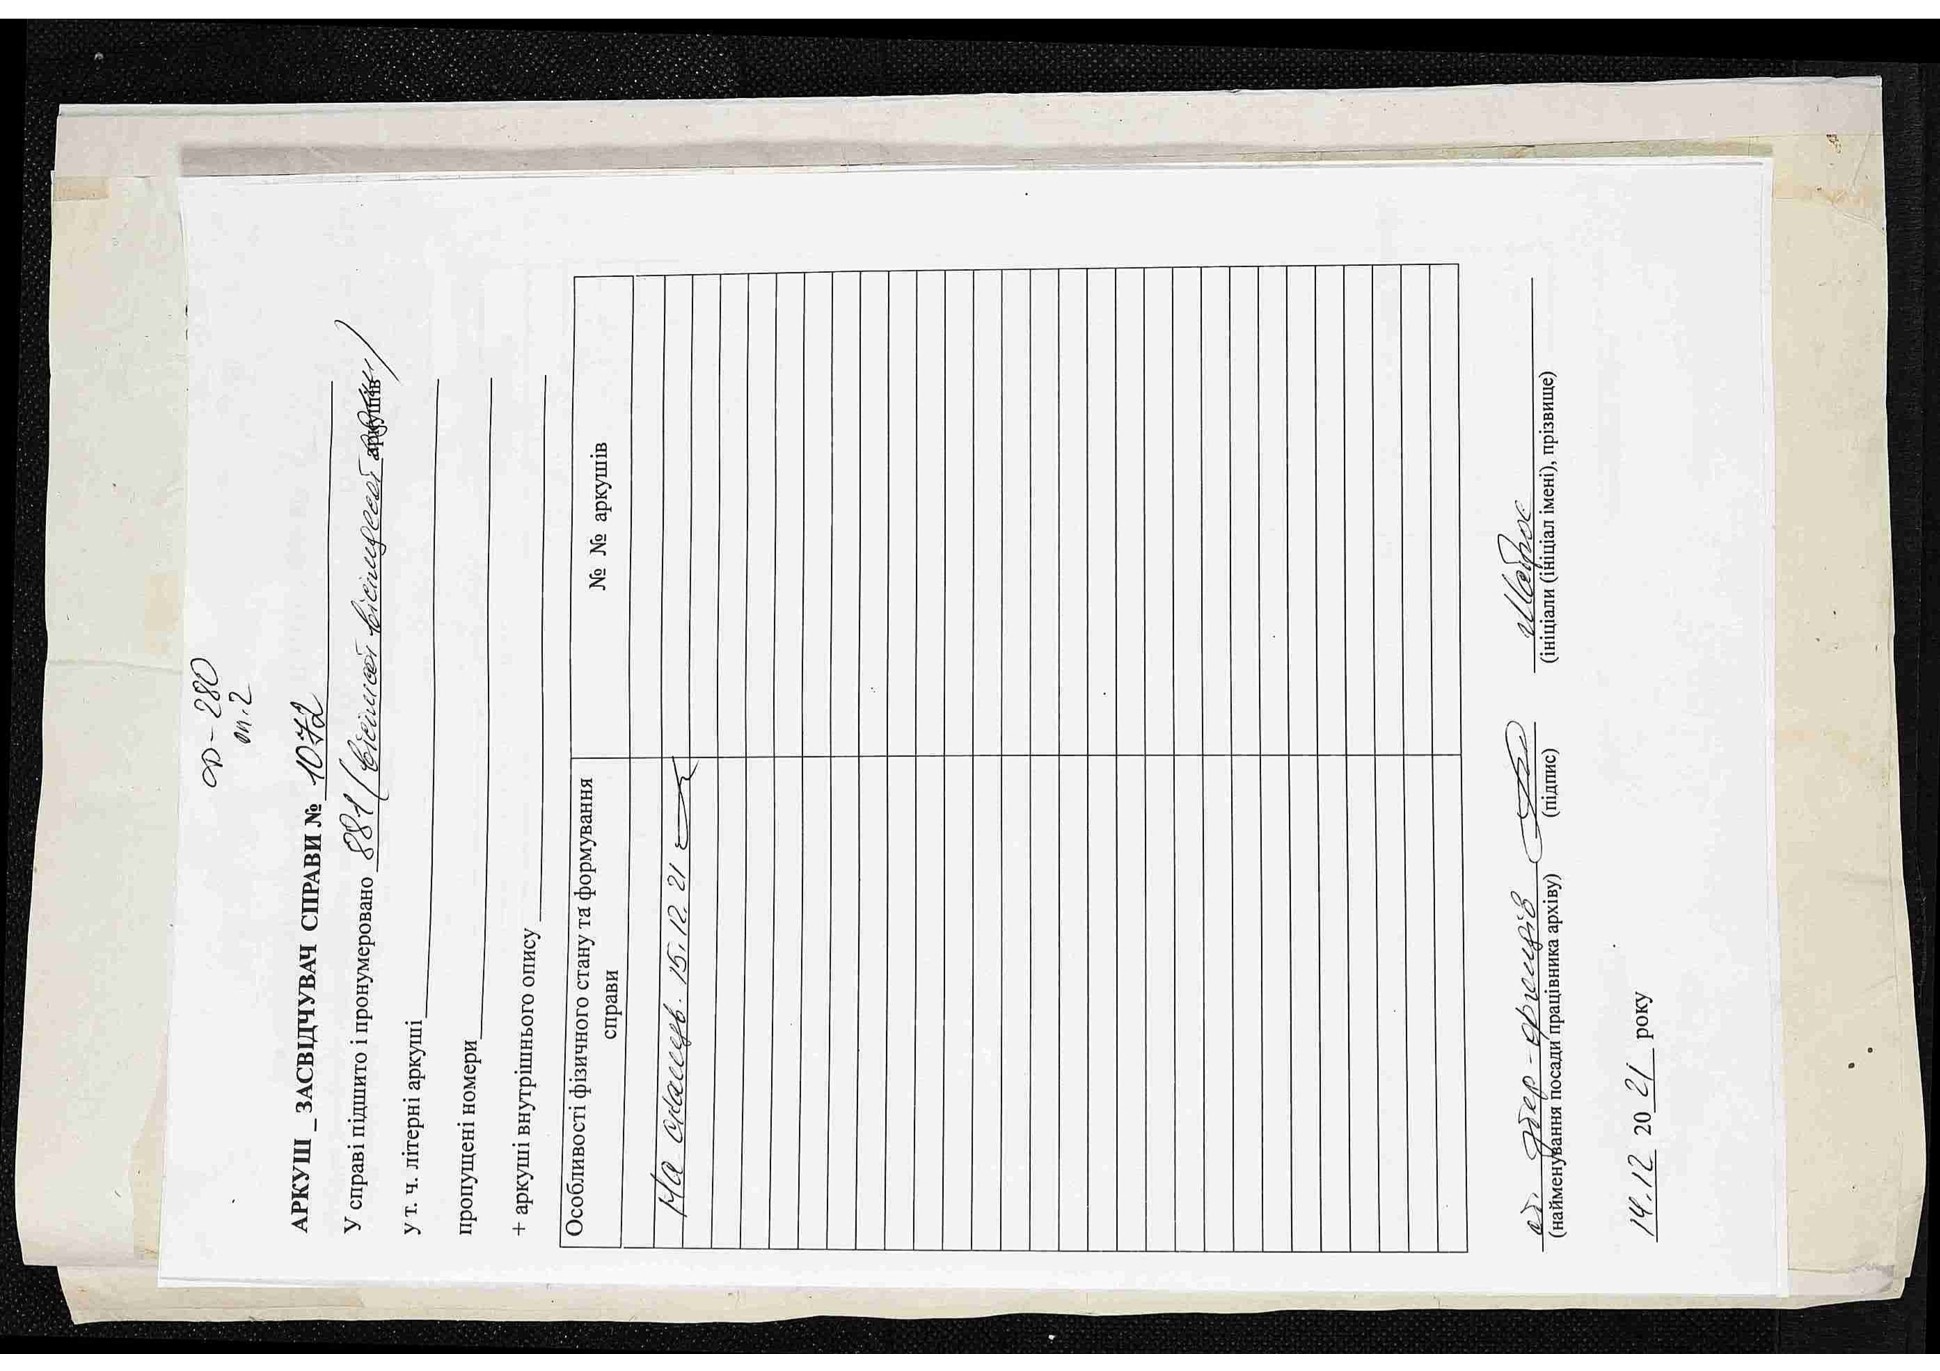 Ф-280
оп.2
АРКУШ _ ЗАСВІДЧУВАЧ СПРАВИ № 1072
У справі підшито і пронумеровано 881 (вісімсот вісімдесят аркушів
у т. ч. літерні аркуші
пропущені номери
+ аркуші внутрішнього опису
Особливості фізичного стану та формування справи
№ № аркушів
15.12.21
(найменування посади працівника архіву)
(підпис)
(ініціали (ініціал імені), прізвище)
14.12 2021 року